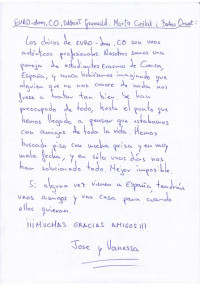 Los chicos de EURO-dom.CO son unos
auténticos profesionales. Nosotros somos una
pareja de estudiantes Erasmus de Cuenca,
España, y nunca habíamos imaginado que
alguien que no nos conoce de nada, nos
fuese a tratar tan bien. Se han
preocupado de todo, hasta el punto que
hemos llegado a pensar que estábamos
con amigos de toda la vida. Hemos
buscado piso con mucha prisa y en muy
mala fecha, y en sólo unos días nos
han solucionado todo. Mejor imposible.
Si alguna vez vienen a España, tendrán
unos amigos y una casa para cuando
ellos quieran.
¡¡¡MUCHAS GRACIAS AMIGOS!!!
Jose y Vanessa